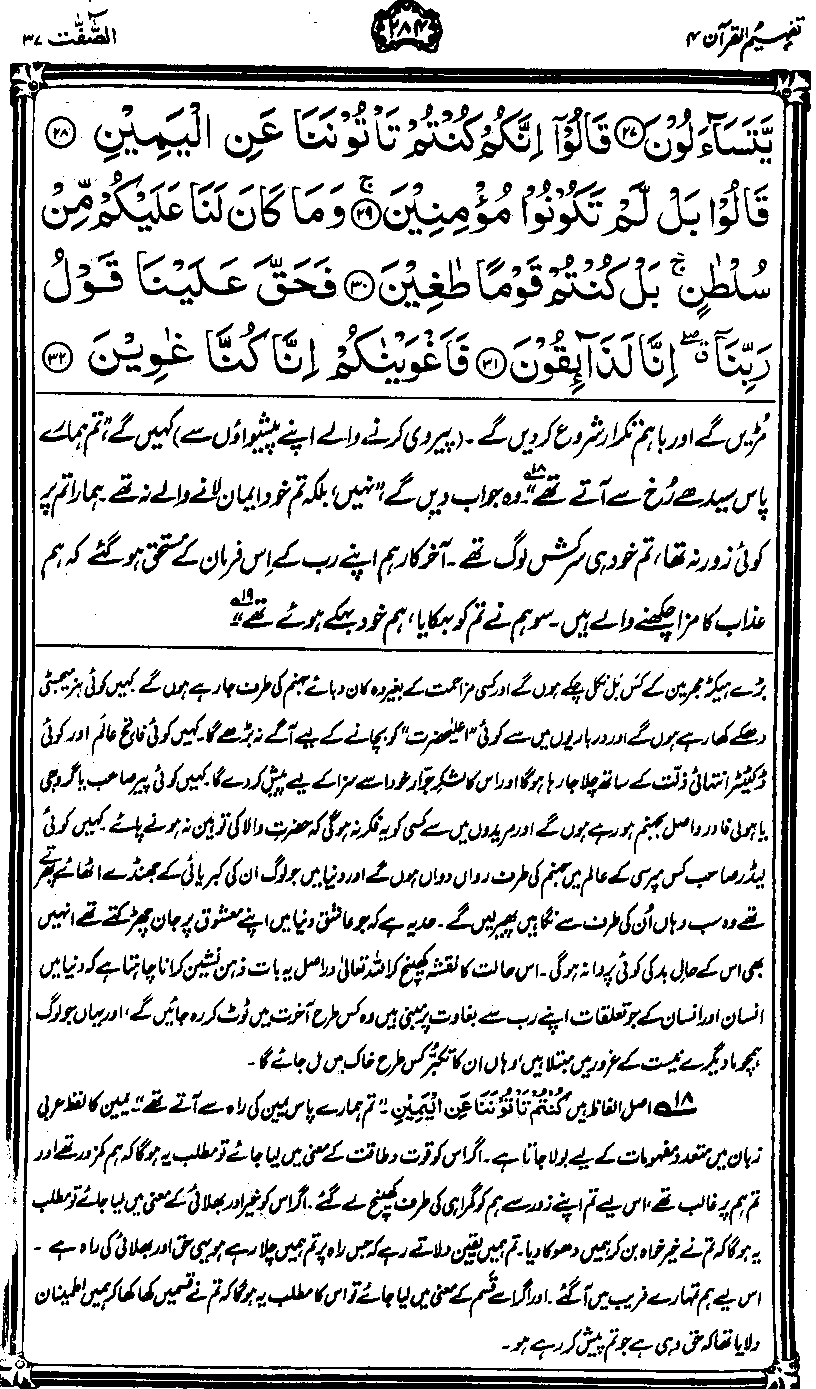 تفہیم القرآن ۴
۲۸۴
الصّٰفّٰت ۳۷
يَّتَسَآءَلُوْنَ ﴿۲۷﴾ قَالُوْٓا اِنَّكُمْ كُنْتُمْ تَاْتُوْنَنَا عَنِ الْيَمِيْنِ ﴿۲۸﴾
قَالُوْا بَلْ لَّمْ تَكُوْنُوْا مُؤْمِنِيْنَ ﴿۲۹﴾ۚ وَمَا كَانَ لَنَا عَلَيْكُمْ مِّنْ
سُلْطٰنٍۚ بَلْ كُنْتُمْ قَوْمًا طٰغِيْنَ ﴿۳۰﴾ فَحَقَّ عَلَيْنَا قَوْلُ
رَبِّنَآۖ ق اِنَّا لَذَآىِٕقُوْنَ ﴿۳۱﴾ فَاَغْوَيْنٰكُمْ اِنَّا كُنَّا غٰوِيْنَ ﴿۳۲﴾
مُڑیں گے اور باہم تکرار شروع کر دیں گے۔ (پیروی کرنے والے اپنے پیشواؤں سے) کہیں گے، "تم ہمارے
پاس سیدھے رُخ سے آتے تھے"۱۸۔ وہ جواب دیں گے، "نہیں، بلکہ تم خود ایمان لانے والے نہ تھے۔ ہمارا تم پر
کوئی زور نہ تھا، تم خود ہی سرکش لوگ تھے۔ آخرکار ہم اپنے رب کے اِس فرمان کے مستحق ہو گئے کہ ہم
عذاب کا مزا چکھنے والے ہیں۔ سو ہم نے تم کو بہکایا، ہم خود بہکے ہوئے تھے"۱۹
بڑے ہیکڑ مجرمین کے کس بل نکل چکے ہوں گے اور کسی مزاحمت کے بغیر وہ کان دبائے جہنم کی طرف جا رہے ہوں گے۔ کہیں کوئی ہز میجسٹی
دھکے کھا رہے ہوں گے اور درباریوں میں سے کوئی "اعلیٰحضرت" کو بچانے کے لیے آگے نہ بڑھے گا۔ کہیں کوئی فاتح عالم اور کوئی
ڈکٹیٹر انتہائی ذلت کے ساتھ چلا جا رہا ہوگا اور اس کا لشکرِ جرّار خود اسے سزا کے لیے پیش کر دے گا۔ کہیں کوئی پیر صاحب یا گرو جی
یا ہولی فادر واصل بجہنم ہو رہے ہوں گے اور مریدوں میں سے کسی کو یہ فکر نہ ہوگی کہ حضرتِ والا کی توہین نہ ہونے پائے۔ کہیں کوئی
لیڈر صاحب کس مپرسی کے عالم میں جہنم کی طرف رواں دواں ہوں گے اور دنیا میں جو لوگ ان کی کبریائی کے جھنڈے اٹھائے پھرتے
تھے وہ سب وہاں اُن کی طرف سے نگاہیں پھیر لیں گے۔ حد یہ ہے کہ جو عاشق دنیا میں اپنے معشوق پر جان چھڑکتے تھے انہیں
بھی اس کے حالِ بد کی کوئی پروا نہ ہوگی۔ اس حالت کا نقشہ کھینچ کر اللہ تعالیٰ دراصل یہ بات ذہن نشین کرانا چاہتا ہے کہ دنیا میں
انسان اور انسان کے جو تعلقات اپنے رب سے بغاوت پر مبنی ہیں وہ کس طرح آخرت میں ٹوٹ کر رہ جائیں گے، اور یہاں جو لوگ
ہمچو ما دیگرے نیست کے غرور میں مبتلا ہیں، وہاں ان کا تکبُّر کس طرح خاک میں مل جائے گا۔
۱۸ اصل الفاظ ہیں كُنْتُمْ تَاْتُوْنَنَا عَنِ الْيَمِيْنِ۔ "تم ہمارے پاس یمین کی راہ سے آتے تھے"۔ یمین کا لفظ عربی
زبان میں متعدد مفہومات کے لیے بولا جاتا ہے۔ اگر اس کو قوت و طاقت کے معنی میں لیا جائے تو مطلب یہ ہوگا کہ ہم کمزور تھے اور
تم ہم پر غالب تھے، اس لیے تم اپنے زور سے ہم کو گمراہی کی طرف کھینچ لے گئے۔ اگر اس کو خیر اور بھلائی کے معنی میں لیا جائے تو مطلب
یہ ہوگا کہ تم نے خیر خواہ بن کر ہمیں دھوکا دیا۔ تم ہمیں یقین دلاتے رہے کہ جس راہ پر تم ہمیں چلا رہے ہو یہی حق اور بھلائی کی راہ ہے۔
اس لیے ہم تمہارے فریب میں آ گئے۔ اور اگر اسے قَسم کے معنی میں لیا جائے تو اس کا مطلب یہ ہوگا کہ تم نے قسمیں کھا کھا کر ہمیں اطمینان
دلایا تھا کہ حق وہی ہے جو تم پیش کر رہے ہو۔